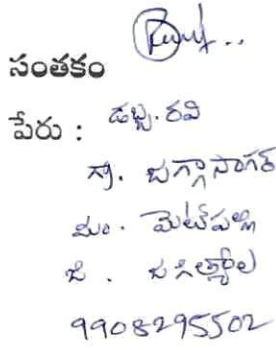 సంతకం
పేరు : డబ్బ. రవి
గ్రా. బగ్గాసాగర్
మం. మెట్‌పల్లి
జి. జగిత్యాల
9908295502